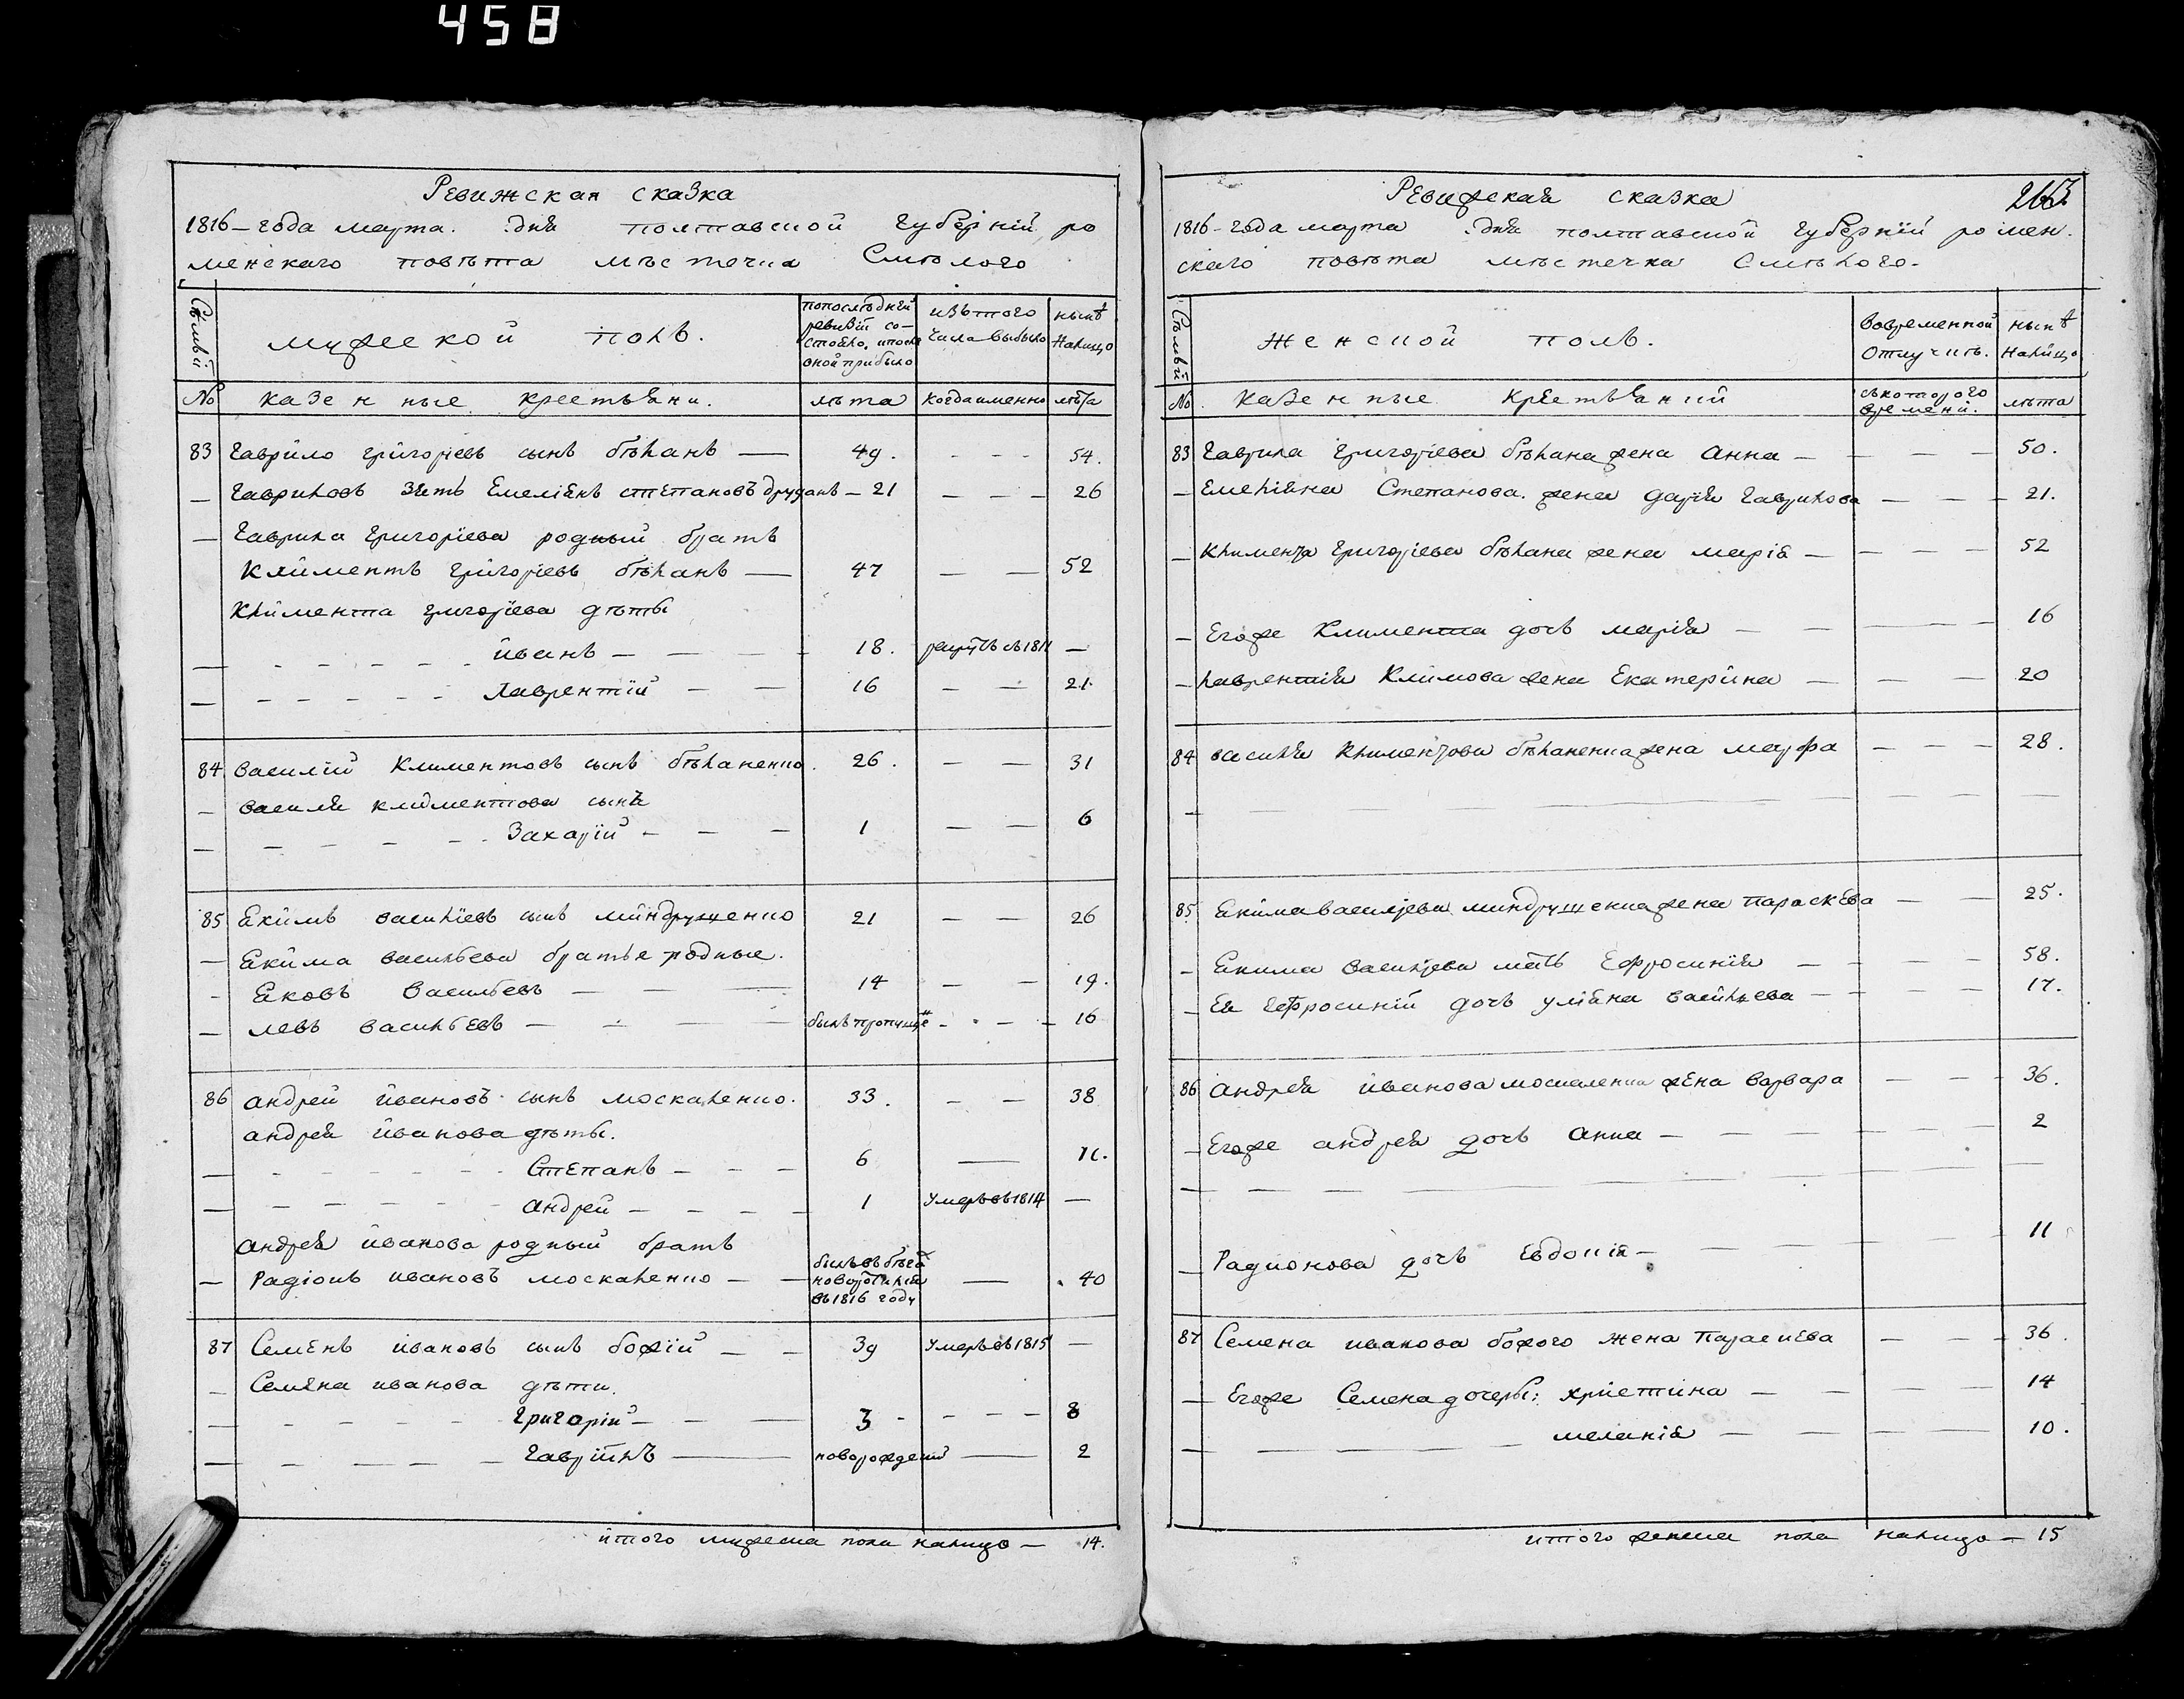 458
Ревижская сказка
1816- года марта. дня полтавской губерній ро
менскаго повѣта мѣстечка Смѣлого
Семьи
мужеской полъ.
попослѣдней ревизіи состояло, ипосле оной прибыло
изътого числа выбыло
нынѣ налицо
№ казенные крестьяни.
лѣта
когда именно
лѣта
83 Гаврило григоріевъ сынъ бѣланъ — 49. - - - 54.
— Гавриловъ зять Емеліянъ степановъ друдань — 21 — — — 26
— Гаврила григоріева родный братъ
Климентъ григоріевъ бѣланъ — 47 — — 52
Климента григоріева дѣты
— - - - - - йванъ — — — 18. рекрутъ въ 1811 —
— - - - - - Лаврентій — — 16 — — 21.
84 василій Климентовъ сынъ бѣланенко. 26. — — 31
— василя климентова сынъ
— — — — - - Захарій - — — 1 — — 6
85 Екимъ васильевъ сынъ миндрущенко 21 — — 26
— Екима васильева братья родные.
- Яковъ Васильевъ — — — 14 — — 19.
— левъ васильевъ — — — — былъ пропущѣ - - — — 16
86 андрей йвановъ сынъ москаленко. 33. — — 38
андрея йванова дѣты.
— - - - - - - Степанъ — - — 6 — 11.
— - - - - - - андрей — - — — 1 умеръ въ 1814 —
андрея йванова родный братъ
— Радіонъ ивановъ москаленко — — былъ въ бѣга новоротился въ 1816 году — 40
87 Семенъ ивановъ сынъ божій — — 39 умеръ въ 1815 —
— Семена иванова дѣти.
— - - - - - григорій — — — 3 - - — — 8
— — — — — Гаврійлъ — новорожденій — 2
итого мужеска пола налицо — 14.
Ревижская сказка
1816- года марта дня полтавской губерній ромен.
скаго повѣта мѣстечка Смѣлого.
Семьи
женской полъ.
вовременной отлучиѣ.
нынѣ налицо
№ Казенные крестьяний
съкоторого времени.
лѣта
83 Гаврила григоріева бѣлана жена Анна — — — — 50.
— Емеліяна Степанова. жена дарія гаврилова — — — 21.
— Климента григоріева бѣлана жена марія — — — — 52
— Егоже Климента дочь марія — — — — — 16
— лаврентія Климова жена Екатерина — — — — 20
84 василя климентова бѣланенка жена марфа — — — 28.
85 Екима васильева миндрущенка жена параскева — — 25.
— Екима васильева мать Ефросинія — — — — 58.
— Ея Ефросиній дочь уліяна васильева — — — — 17.
86 андрея йванова москаленка жена варвара — — — 36.
— Егоже андрея дочь анна — — — — — — 2
— Радионова дочь Евдокія — — — — — 11
87 Семена иванова божого жена параскева — — — 36.
— Егоже Семена дочеры: христина — — — — 14
— — — — меланія — — — — 10.
итого женска пола налицо — 15